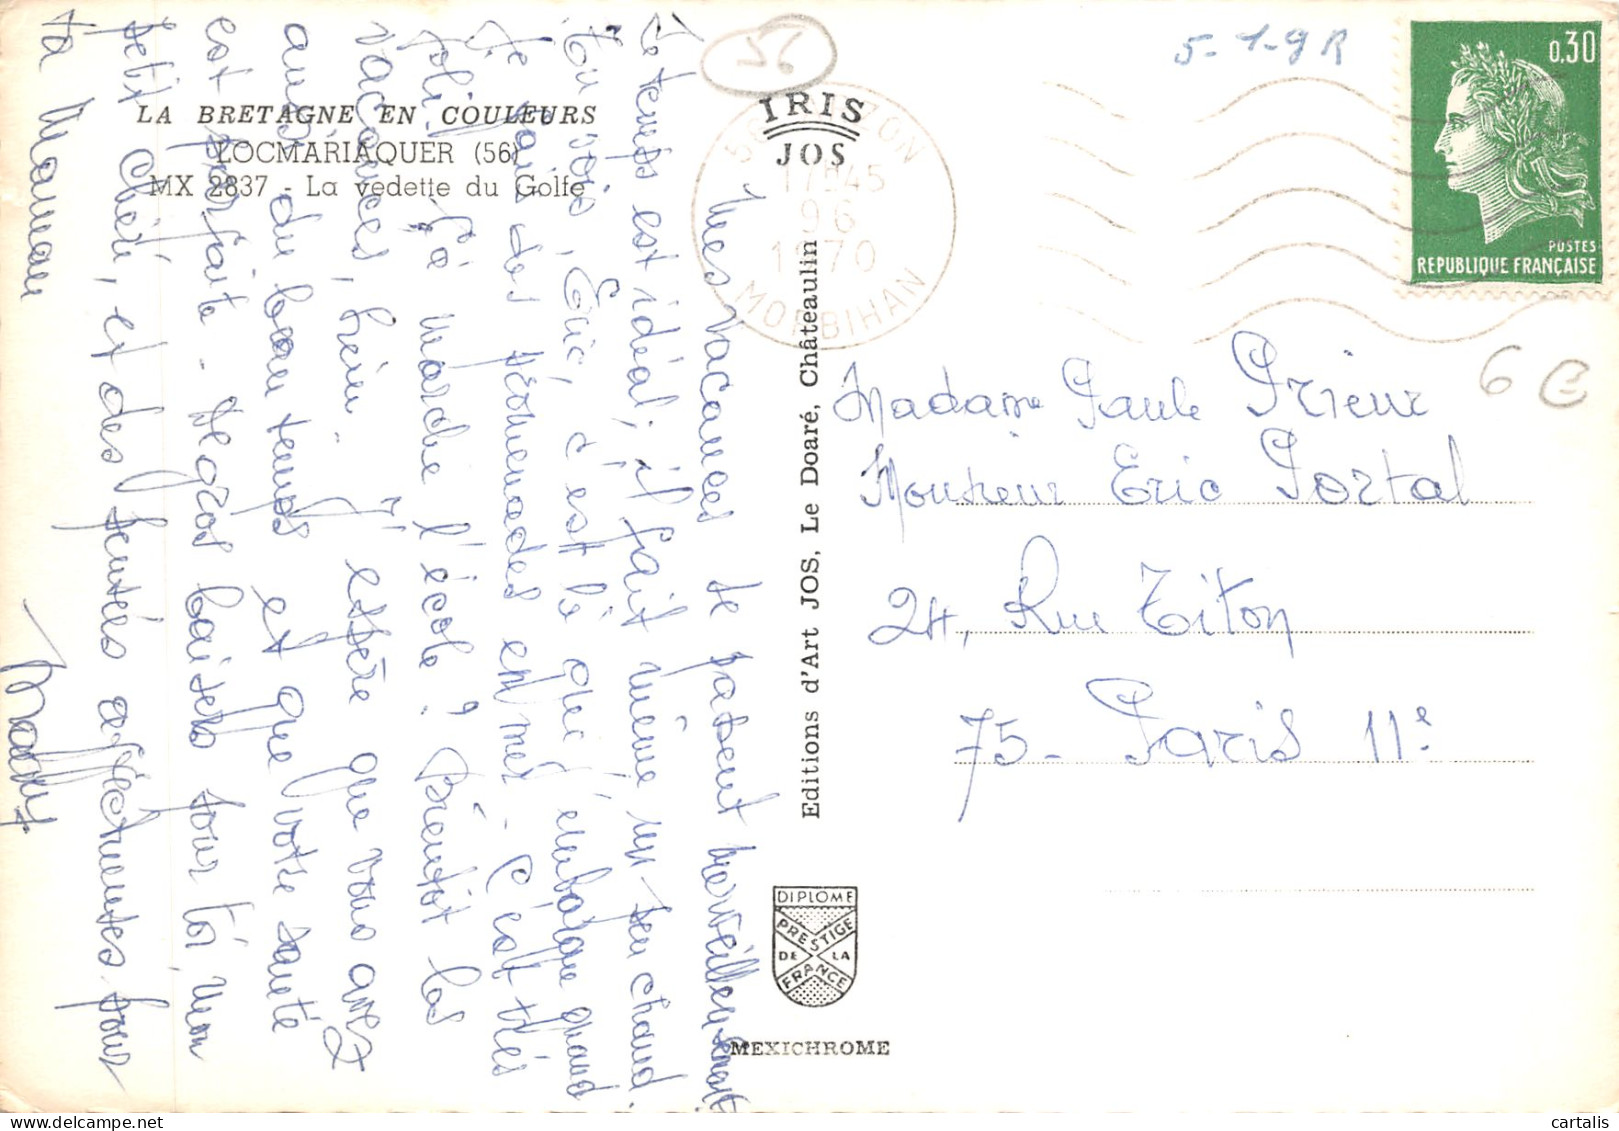 LA BRETAGNE EN COULEURS
LOCMARIAQUER (56)
MX 2837 - La vedette du Golfe
Mes vacances se passent merveilleusement
Le temps est idéal, il fait même un peu chaud.
Tu vois, Éric, c'est là que j'embarque quand
je vais des promenades en mer - C'est très
joli - Çà marche l'école ? Bientôt les
vacances, hein - J'espère que vous avez
aussi du beau temps et que votre santé
est parfaite - De gros baisers pour toi, mon
petit chéri, et des pensées affectueuses pour
ta Maman
56
IRIS
JOS
56 ZON
17H45
9 6
1970
MORBIHAN
Editions d'Art JOS, Le Doaré, Châteaulin
DIPLOME
PRESTIGE
DE LA
FRANCE
MEXICHROME
5-1-9R
0,30
POSTES
REPUBLIQUE FRANÇAISE
6 €
Madame Paule Prieur
Monsieur Eric Portal
24, Rue Titon
75 - Paris 11e
cartalis
delcampe.net